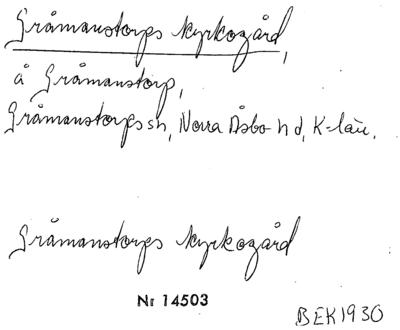 Gråmanstorps kyrkogård,
å Gråmanstorp,
Gråmanstorps sn, Norra Åsbo hd, K-län.
Gråmanstorps kyrkogård
Nr 14503
BEK1930